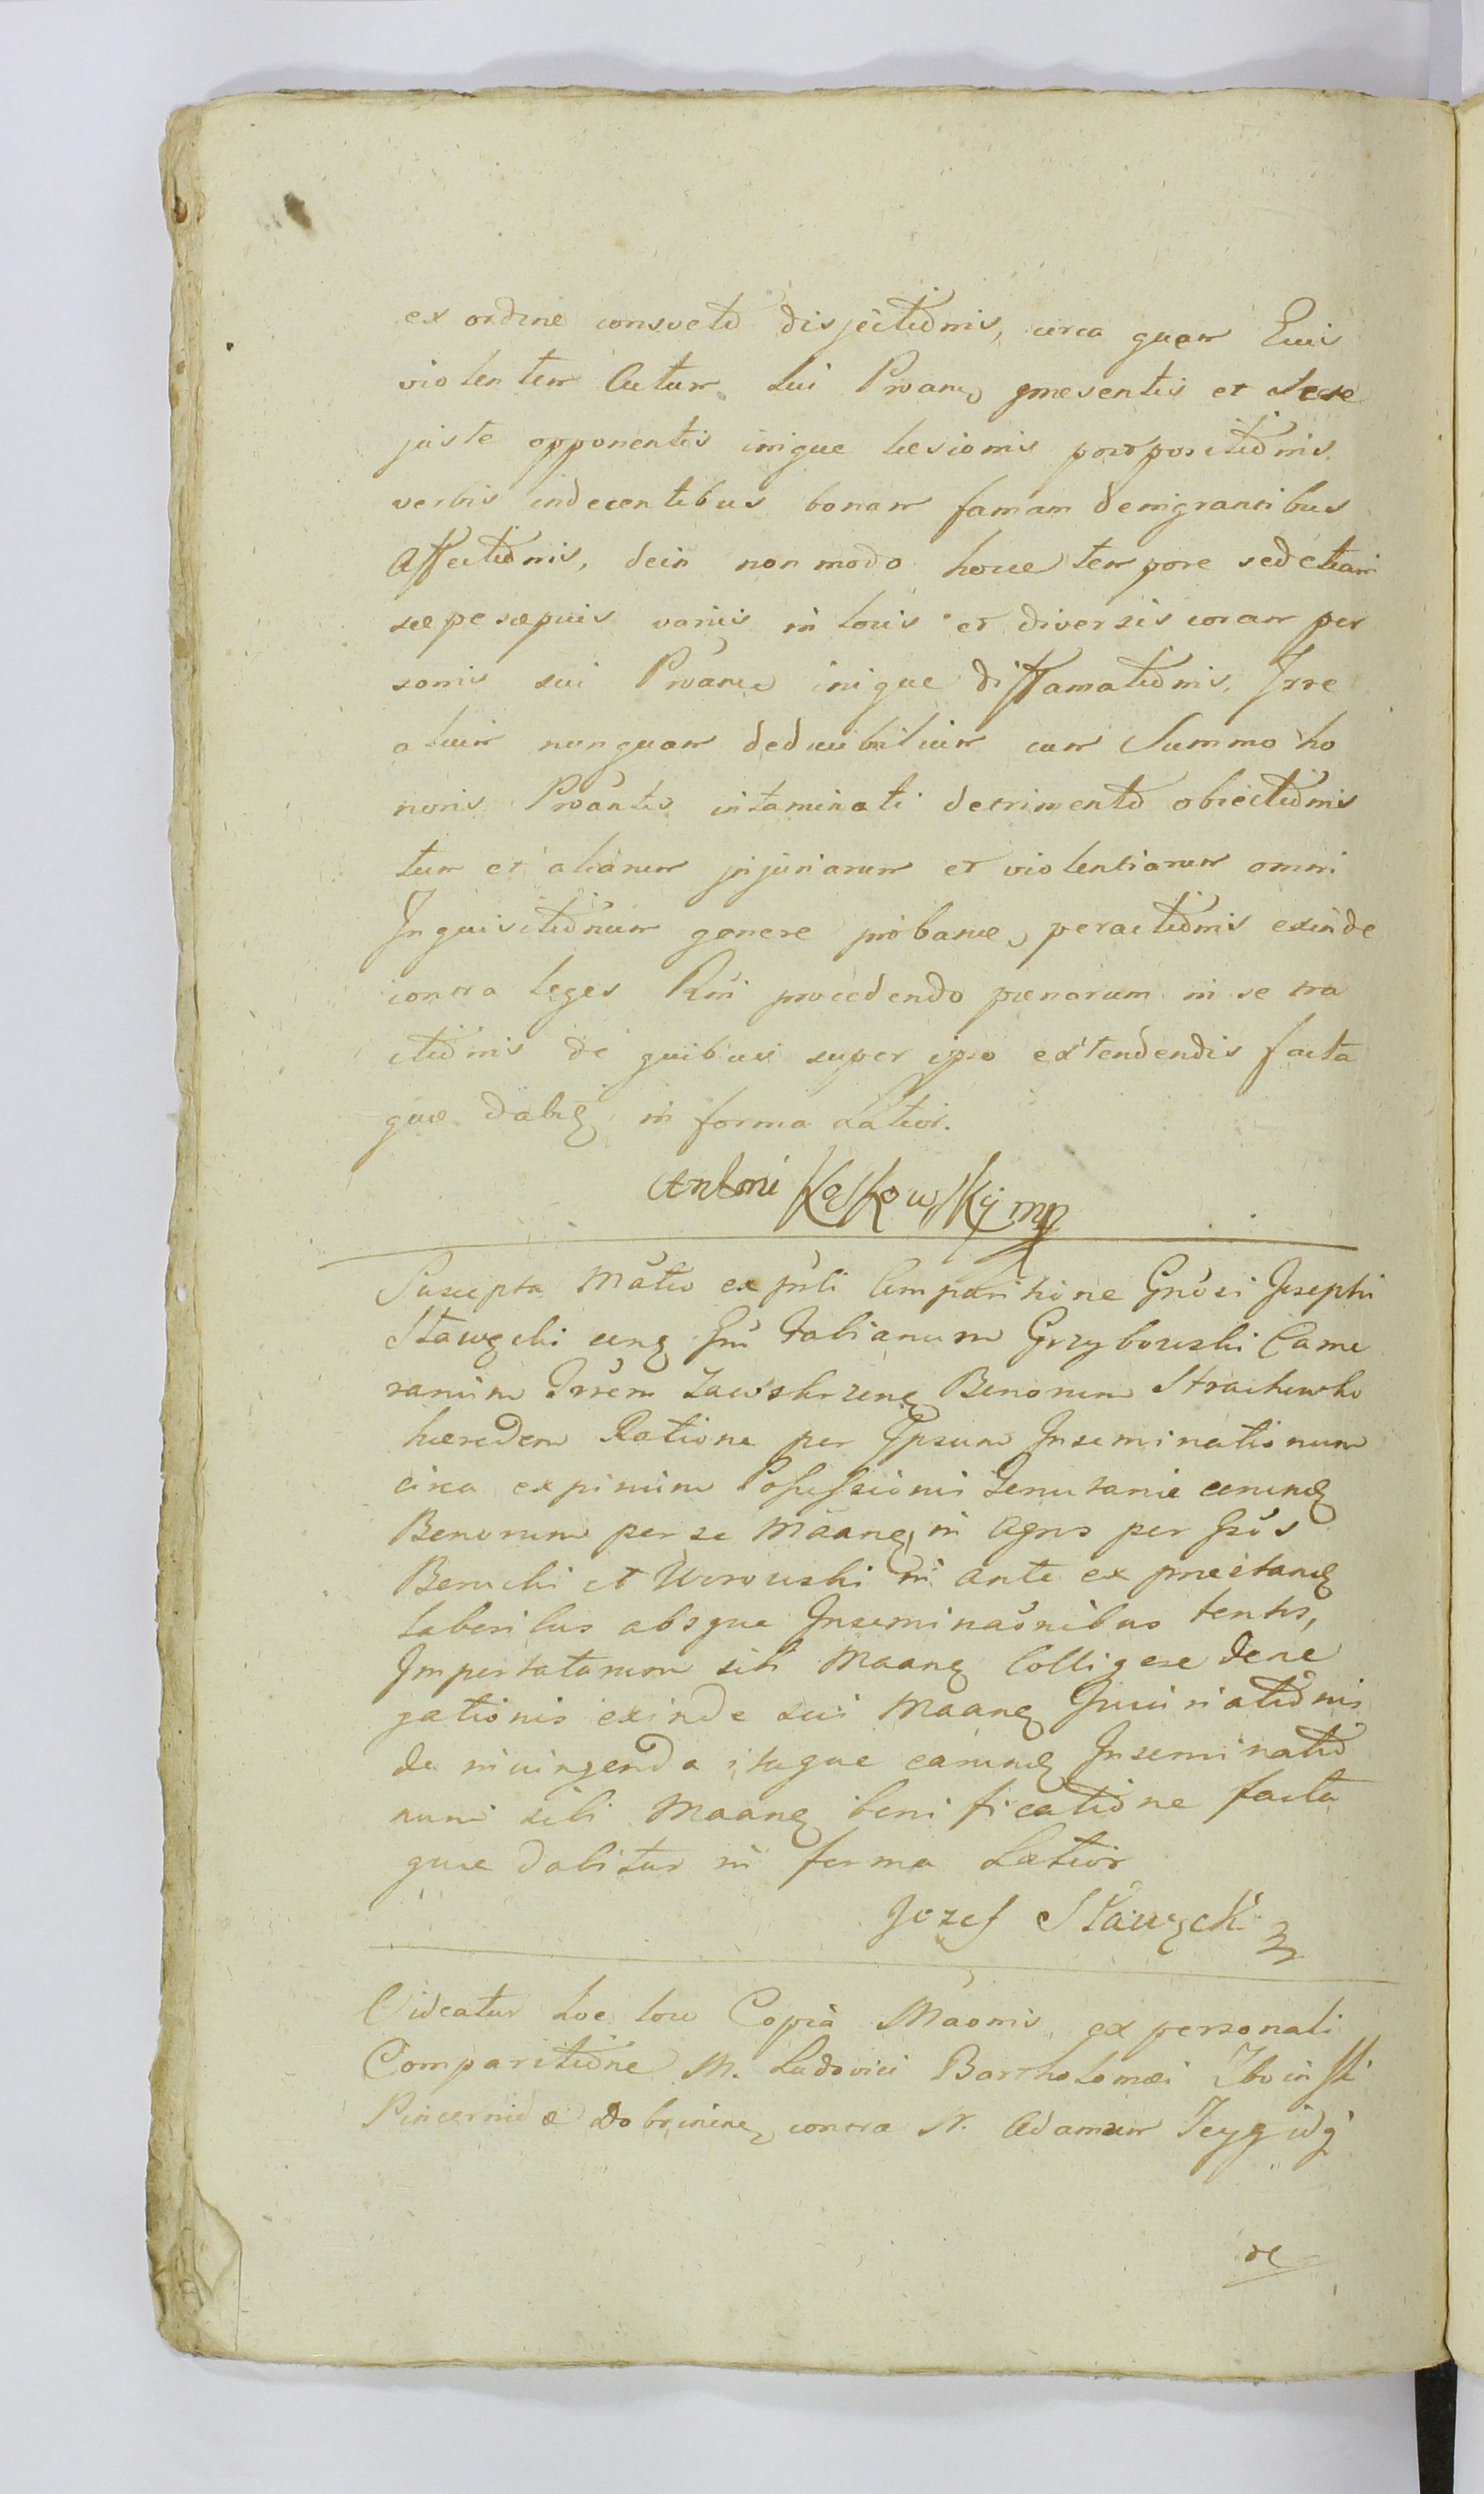 ex ordine consveto disjectionis, circa quam Eius
violentem Actum Sui Proanđ praesentis et Sese
juste opponentis inique lesionis propositionis
verbis indecentibus bonam famam denigrantibus
Affectionis, dein non modo hocce tempore sed etiam
saepe saepius variis in locis et diversis coram per
sonis sui Proanđ inique diffamationis, Irre
aluim nunquam deducibilium cum Summo ho
noris Proantis intaminati detrimento obiectionis
tum et aliarum injuriarum et violentiarum omni
Inquisitionum genere probanđ, peractionis exinde
contra leges Rni procedendo poenarum in se tra
ctionis de quibus super ipso extendendis facta
que dabit in forma Latior.
Antoni Koskowskÿ mp
Suscepta Mãtio ex prsli Comparitione Gnosi Josephi
Stawęcki erog Gm Fabianum Grzybowski Came
rarium Trrem Zawskrzenę Bonorum Strachowko
haeredem Ratione per Ipsum Inseminationum
circa expirium Possessionis Tenutariae earund
Bonorum per se Maang in Agris per Gsos
Benicki et Worowski ni ante ex praestand
laboribus absque Inseminaõnibus tentis,
Importatarum sibi Maang Colligere dene
gationis exinde sui Maang Iniuriationis
de niuingenda itaque earund Inseminatio
num sibi Maang bonificatione facta
que dabitur in forma Latior
Jozef Stawęcki
Videatur hoc loco Copia Mãonis ex personali
Comparitione M. Ludovici Bartholomaei Zboinski
Pincernidae Dobrinenę contra N. Adamum
de